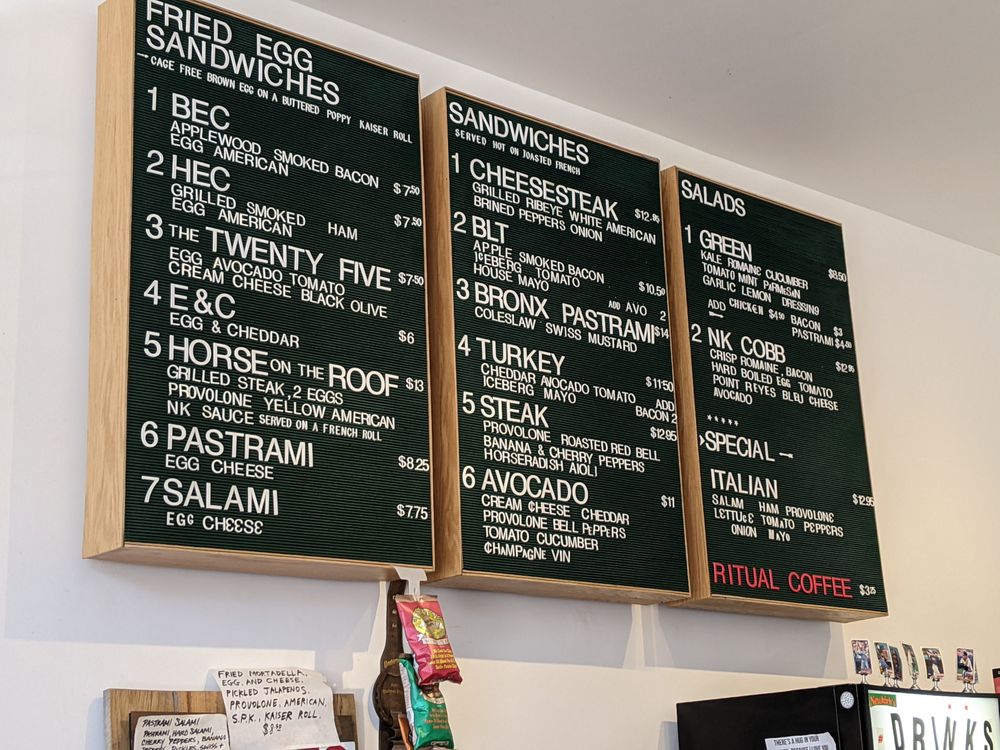 FRIED EGG
SANDWICHES
→CAGE FREE BROWN EGG ON A BUTTERED POPPY KAISER ROLL
1 BEC
APPLEWOOD SMOKED BACON
EGG AMERICAN $7.50
2 HEC
GRILLED SMOKED HAM $7.50
EGG AMERICAN
3 THE TWENTY FIVE $7.50
EGG AVOCADO TOMATO
CREAM CHEESE BLACK OLIVE
4 E&C
EGG & CHEDDAR $6
5 HORSE ON THE ROOF $13
GRILLED STEAK, 2 EGGS
PROVOLONE YELLOW AMERICAN
NK SAUCE SERVED ON A FRENCH ROLL
6 PASTRAMI
EGG CHEESE $8.25
7 SALAMI
EGG CHEESE $7.75
SANDWICHES
SERVED HOT ON TOASTED FRENCH
1 CHEESESTEAK $12.95
GRILLED RIBEYE WHITE AMERICAN
BRINED PEPPERS ONION
2 BLT
APPLE SMOKED BACON
ICEBERG TOMATO $10.50
HOUSE MAYO
ADD AVO 2
3 BRONX PASTRAMI $14
COLESLAW SWISS MUSTARD
4 TURKEY
CHEDDAR AVOCADO TOMATO $11.50
ICEBERG MAYO ADD
BACON 2
5 STEAK $12.95
PROVOLONE ROASTED RED BELL
BANANA & CHERRY PEPPERS
HORSERADISH AIOLI
6 AVOCADO $11
CREAM CHEESE CHEDDAR
PROVOLONE BELL PEPPERS
TOMATO CUCUMBER
CHAMPAGNE VIN
SALADS
1 GREEN
KALE ROMAINE CUCUMBER $8.50
TOMATO MINT PARMESAN
GARLIC LEMON DRESSING
ADD CHICKEN $4.50 BACON $3
PASTRAMI $4.50
2 NK COBB
CRISP ROMAINE, BACON $12.95
HARD BOILED EGG TOMATO
POINT REYES BLEU CHEESE
AVOCADO
****
›SPECIAL —
ITALIAN $12.95
SALAM HAM PROVOLONE
LETTUCE TOMATO PEPPERS
ONION MAYO
RITUAL COFFEE $3.25
FRIED MORTADELLA,
EGG, AND CHEESE.
PICKLED JALAPENOS,
PROVOLONE, AMERICAN,
S.P.K., KAISER ROLL.
PASTRAMI SALAMI
PASTRAMI, HARD SALAMI,
CHERRY PEPPERS, BANANA
PEPPERS, PICKLES, SWISS +
THERE'S A HUG IN YOUR
DRINKS